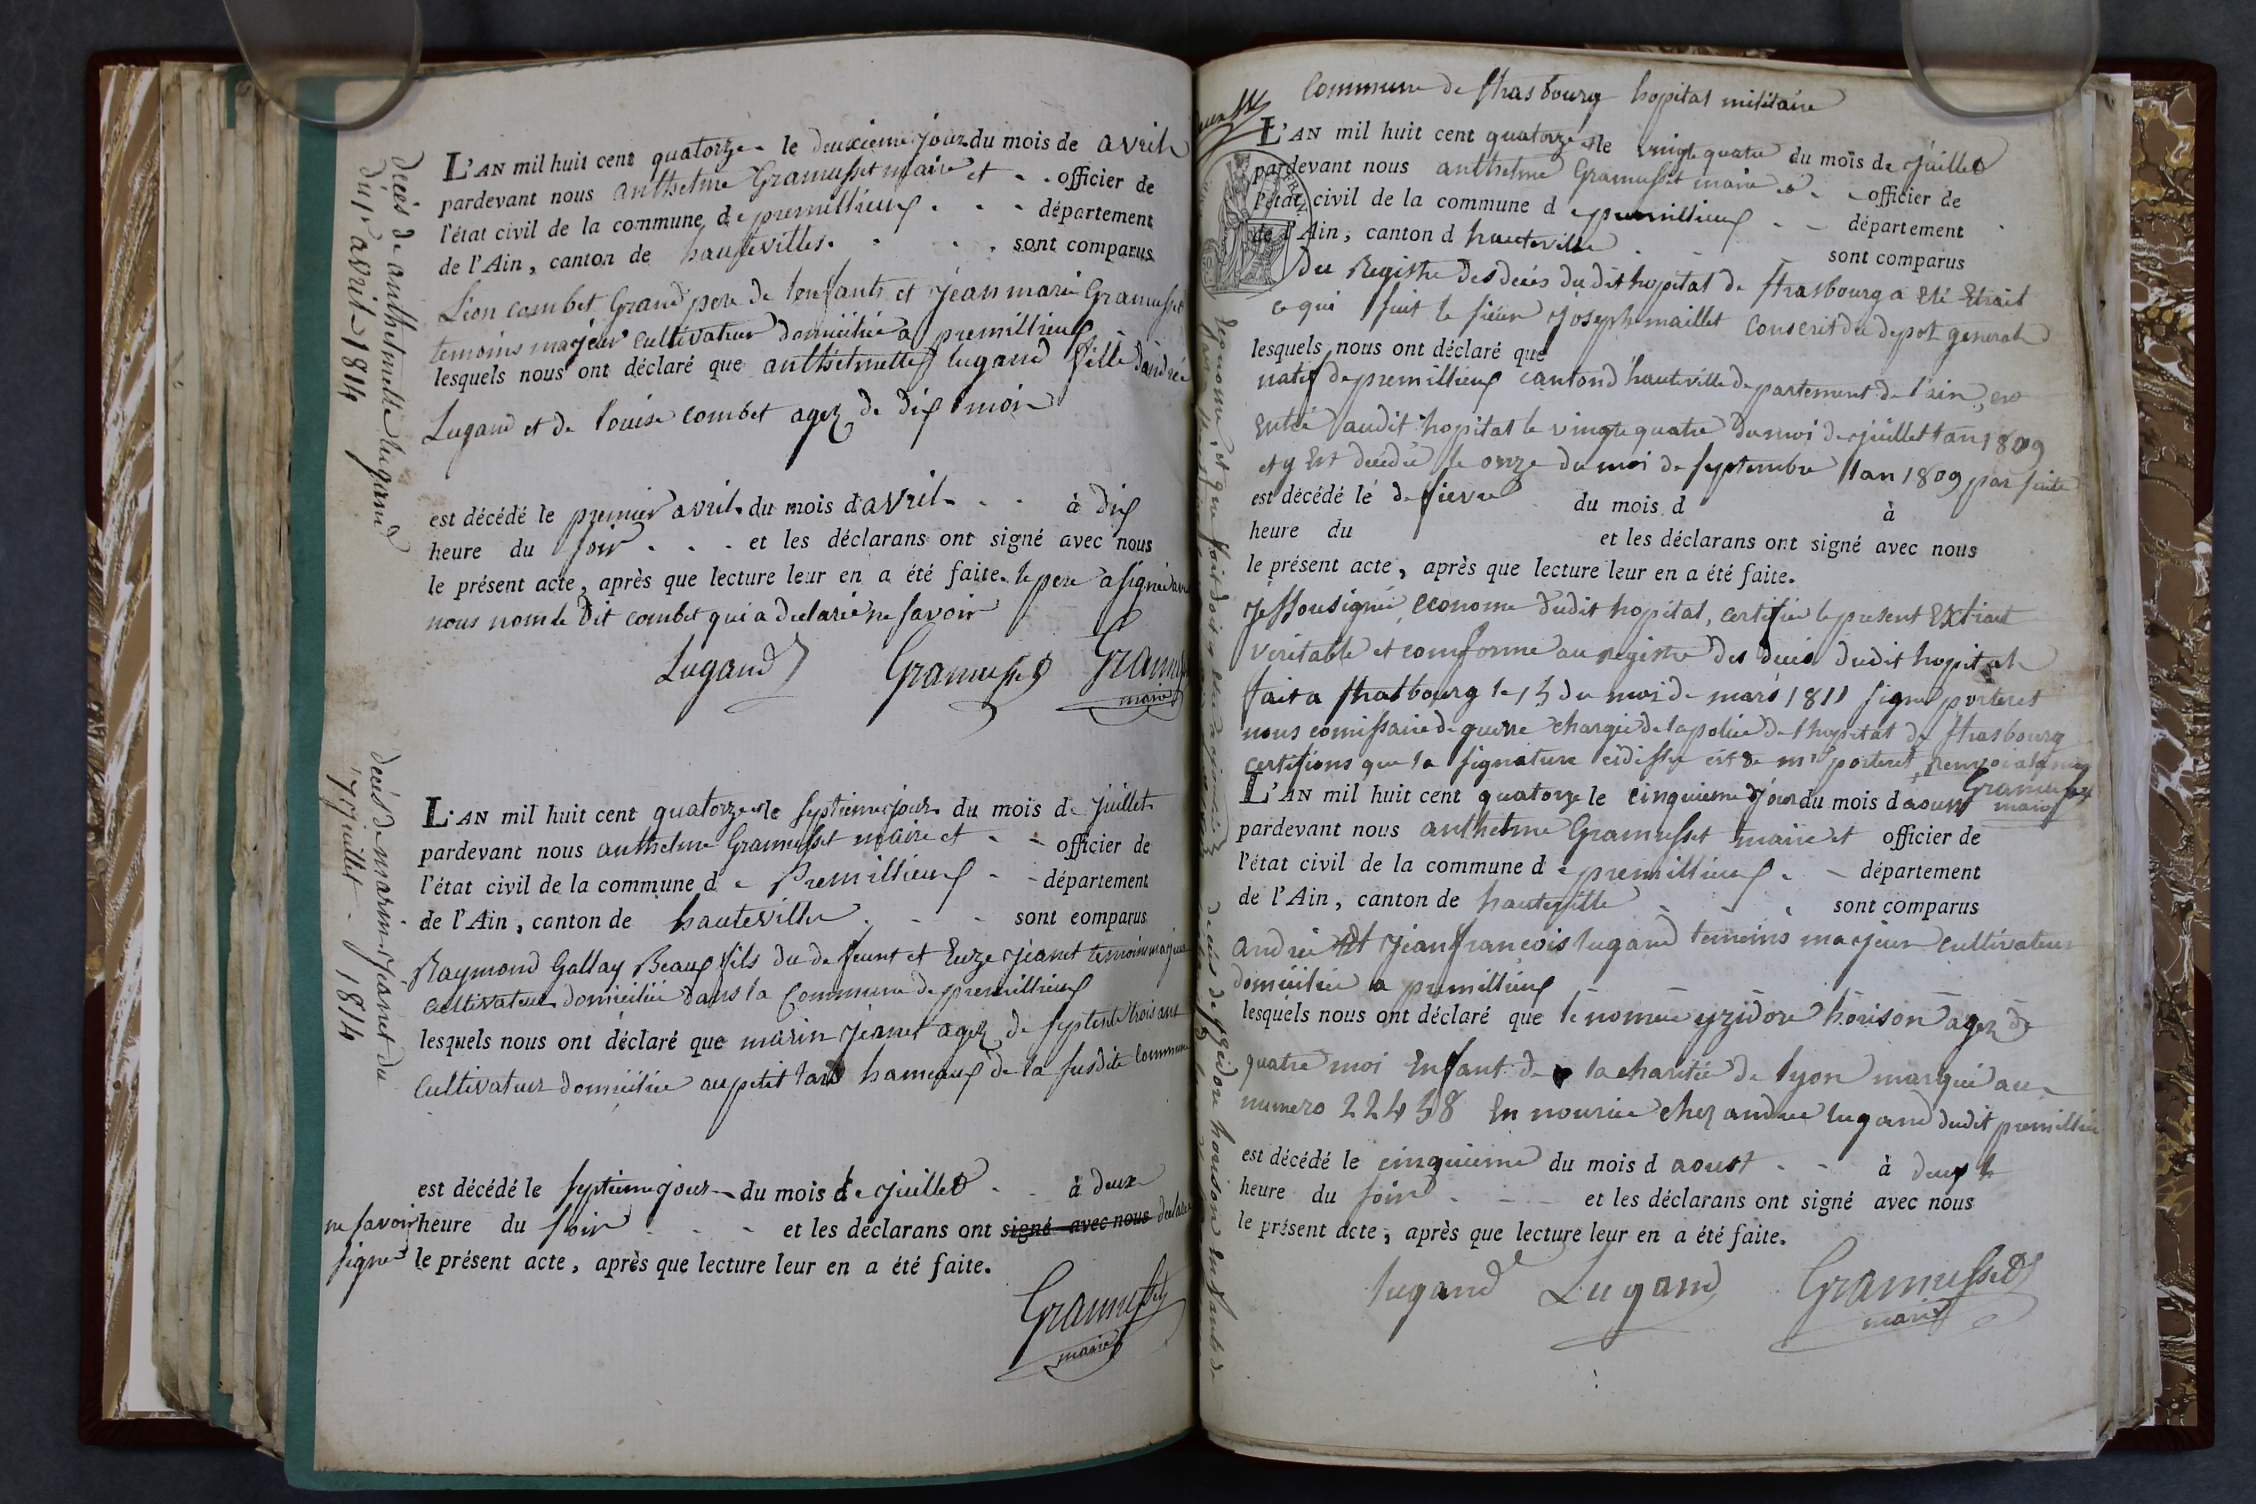 décès de anthelmette lugand
du 1er avril 1814
L'AN mil huit cent quatorze le deuxieme jour du mois de avril
pardevant nous anthelme Gramusset maire et officier de
l'état civil de la commune de premillieux département
de l'Ain, canton de hauteville. sont comparus
Léon combet Grand pere de lenfants et jean marie Gramusset
temoins majeur cultivateur domicilié a premillieux
lesquels nous ont déclaré que anthelmette lugand fille dandré
Lugand et de louise combet agez de dix mois
est décédé le premier avril du mois d avril à dix
heure du soir et les déclarans ont signé avec nous
le présent acte, après que lecture leur en a été faite. le pere a signé avec
nous non le dit combet qui a declaré ne savoir
Lugand Gramusset Gramusset
maire
décès de marin jeanet du
7 juillet 1814
L'AN mil huit cent quatorze le septieme jour du mois de juillet
pardevant nous anthelme Gramusset maire et officier de
l'état civil de la commune de Premillieux département
de l'Ain, canton de hauteville sont comparus
Raymond Gallay Beaux fils du defeunt et jeanet temoins majeur
cultivateur domicilié dans la Commune de premillieux
lesquels nous ont déclaré que marin jeanet agez de septente trois ans
cultivateur domicilié au petit hameaux de la susdite commune
est décédé le septieme jour du mois de juillet à deux
heure du soir et les déclarans ont signé avec nous declaré
ne savoir
signe le présent acte, après que lecture leur en a été faite.
Gramusset
maire
Commune de strasbourg hopital militaire
L'AN mil huit cent quatorze le vingt quatre du mois de juillet
pardevant nous anthelme Gramusset maire et officier de
l'état civil de la commune de premillieux département
de l'Ain, canton d hauteville sont comparus
du Registre des décès dudit hopital de strasbourg a été Etrait
ce qui suit le sieur joseph maillet conscrit du depot general
lesquels nous ont déclaré que
natif de premillieux canton d'hauteville departement de l'ain, es
entré audit hopital le vingt quatre du moi de juillet lan 1809
et y est décédé le onze du moi de septembre lan 1809 par suite
est décédé le de fievre du mois d à
heure du et les déclarans ont signé avec nous
le présent acte, après que lecture leur en a été faite.
je soussigné, econome dudit hopital, certifie le present Extrait
veritable et comforme au registre des décés dudit hopital
fait a strasbourg le 15 du mois de mars 1811 signe porteret
nous comissaire de guerre chargé de la police de lhopital de strasbourg
certifions que la signature cidessu est de mr porteret
Gramusset
maire
L'AN mil huit cent quatorze le cinquieme jour du mois daoust
pardevant nous anthelme Gramusset maire et officier de
l'état civil de la commune de premillieux département
de l'Ain, canton de hauteville sont comparus
andré et jean francois lugand temoins majeur cultivateur
domicilié a premillieux
lesquels nous ont déclaré que le nomée yzidore horison agez de
quatre moi enfant de la charitée de lyon marqué au
numero 22458 en nourice chez andré lugand dudit premillieu
est décédé le cinquieme du mois d aoust à deux h
heure du soir et les déclarans ont signé avec nous
le présent acte, après que lecture leur en a été faite.
lugand Lugand Gramusset
maire
décés de horison enfants de